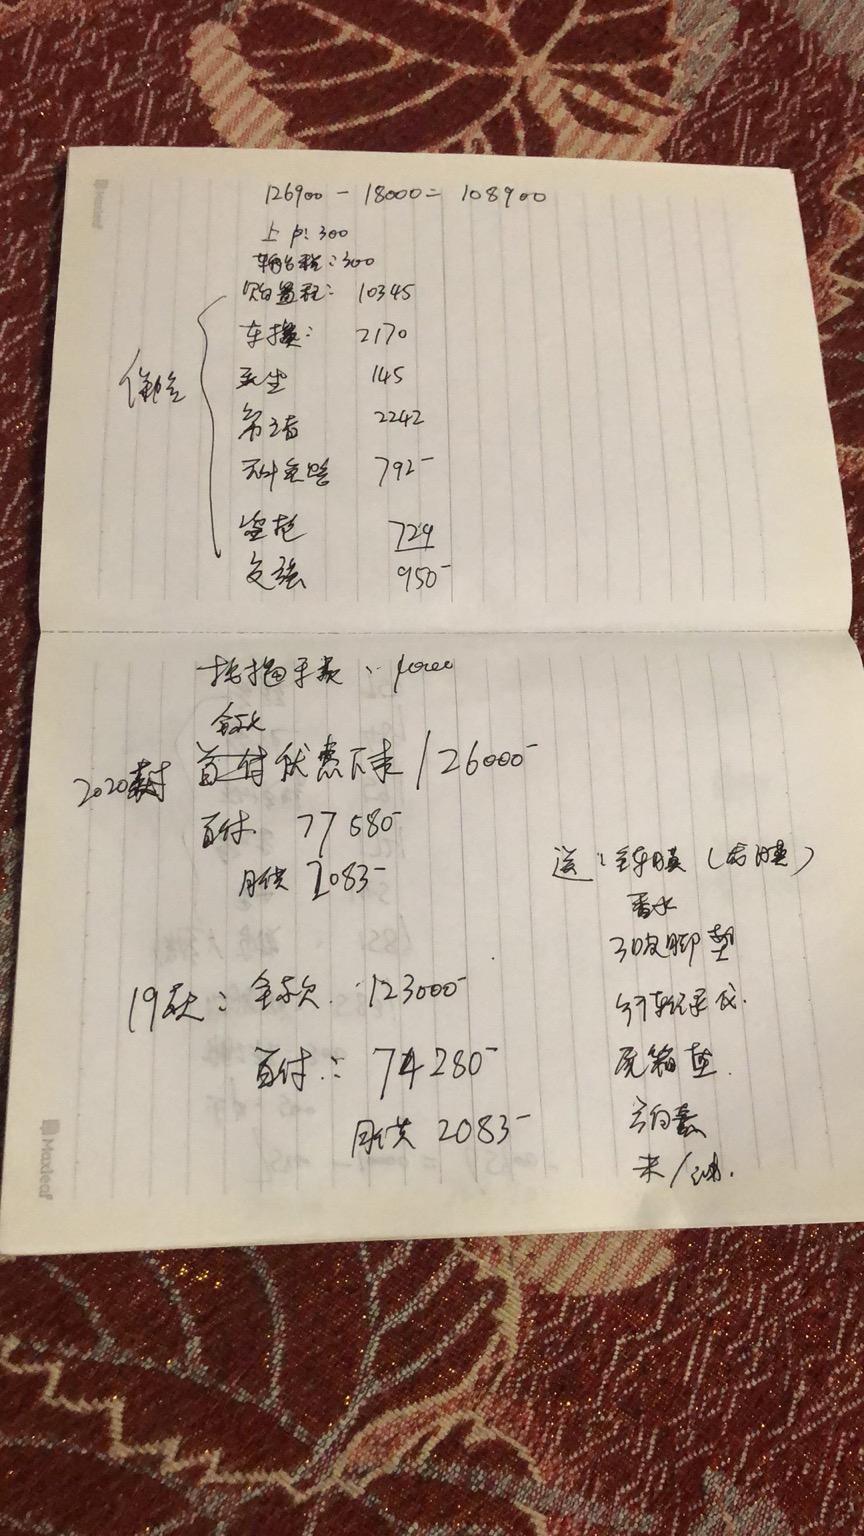 126900 - 18000 = 108900
上户: 300
车船税: 300
购置税: 10345
车损: 2170
保险
玻璃 145
第三者 2242
不计免赔 792
盗抢 729
交强 950
手续: 4000
全款
2020款 首付优惠下来 126000
首付 77580
月供 2083
送: 全车膜(古膜)
香水
3D皮脚垫
19款: 全款 123000
首付: 74280
尾箱垫
月供 2083
米/油
Maxleaf